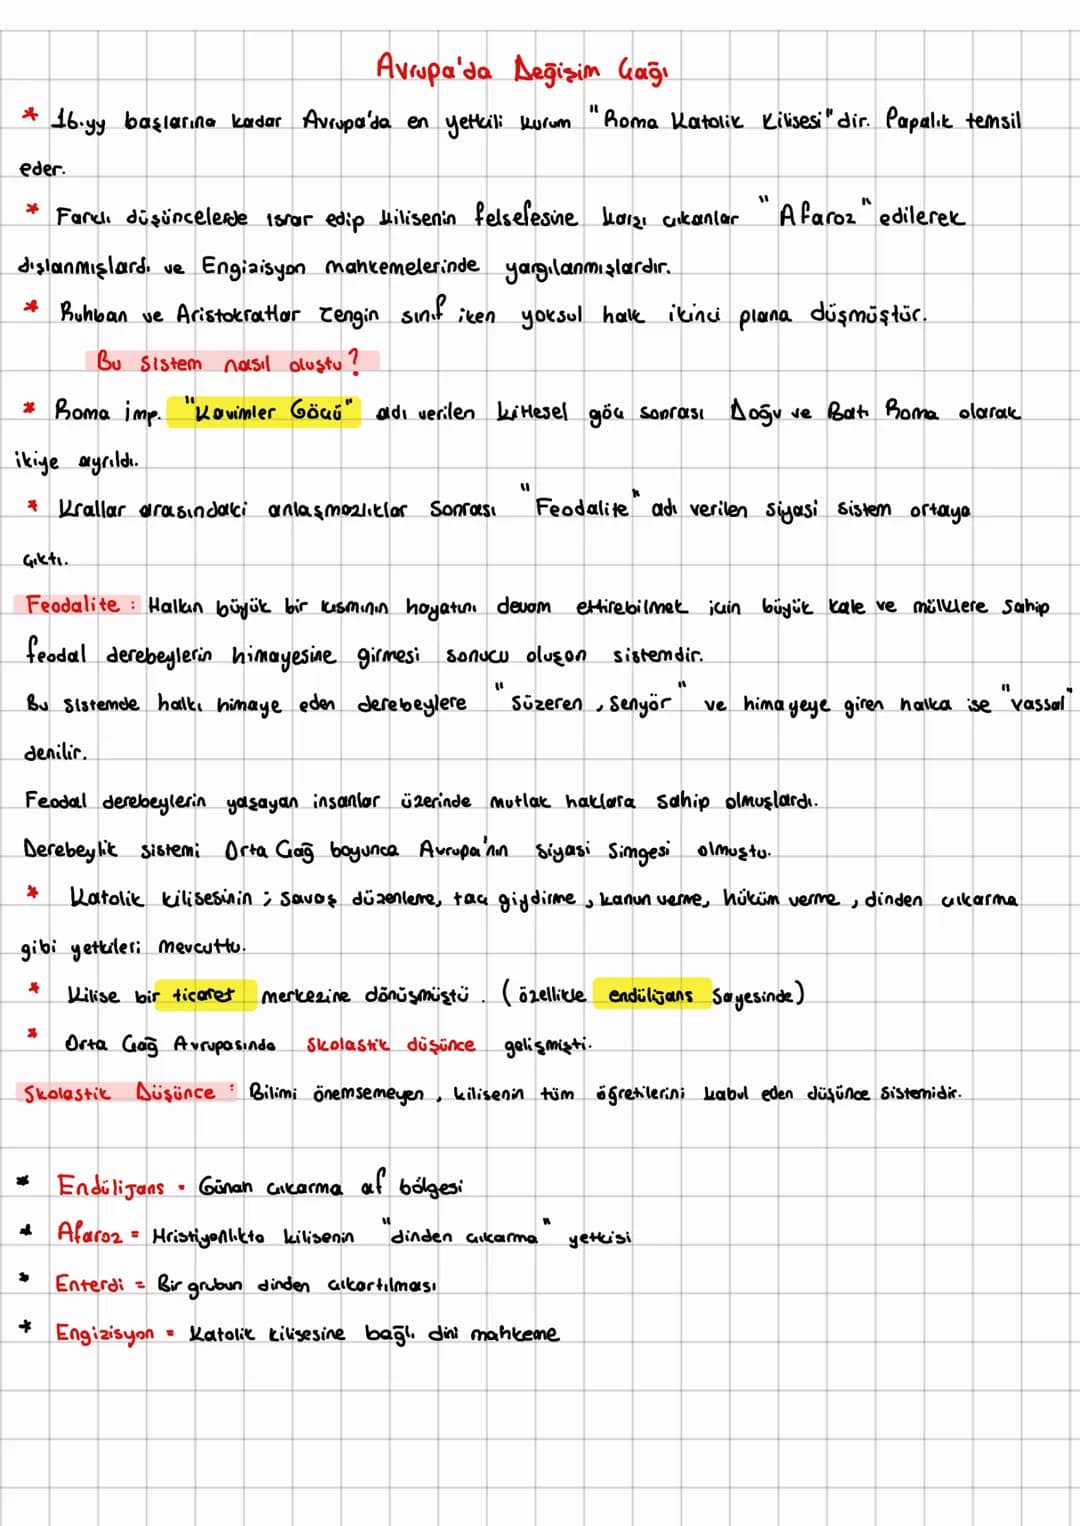 Avrupa'da Değişim Çağı
* 16.yy başlarına kadar Avrupa'da en yetkili kurum "Roma Katolik Kilisesi" dir. Papalık temsil
eder.
* Farklı düşüncelerde ısrar edip kilisenin felsefesine karşı çıkanlar "Afaroz" edilerek
dışlanmışlardı ve Engizisyon mahkemelerinde yargılanmışlardır.
* Ruhban ve Aristokratlar zengin sınıf iken yoksul halk ikinci plana düşmüştür.
Bu sistem nasıl oluştu?
* Roma imp. "Kavimler Göçü" adı verilen kitlesel göç sonrası Doğu ve Batı Roma olarak
ikiye ayrıldı.
* Krallar arasındaki anlaşmazlıklar sonrası "Feodalite" adı verilen siyasi sistem ortaya
çıktı.
Feodalite : Halkın büyük bir kısmının hayatını devam ettirebilmek için büyük kale ve mülklere sahip
feodal derebeylerin himayesine girmesi sonucu oluşan sistemdir.
Bu sistemde halkı himaye eden derebeylere "Süzeren, Senyör" ve himayeye giren halka ise "vassal"
denilir.
Feodal derebeylerin yaşayan insanlar üzerinde mutlak haklara sahip olmuşlardı.
Derebeylik sistemi Orta Çağ boyunca Avrupa'nın siyasi simgesi olmuştu.
* Katolik kilisesinin ; savaş düzenleme, taç giydirme, kanun verme, hüküm verme, dinden çıkarma
gibi yetkileri mevcuttu.
* Kilise bir ticaret merkezine dönüşmüştü. (özellikle endülijans sayesinde)
* Orta Çağ Avrupasında skolastik düşünce gelişmişti.
Skolastik Düşünce : Bilimi önemsemeyen, kilisenin tüm öğretilerini kabul eden düşünce sistemidir.
* Endülijans = Günah çıkarma af bölgesi
* Afaroz = Hristiyanlıkta kilisenin "dinden çıkarma" yetkisi
* Enterdi = Bir grubun dinden çıkartılması
* Engizisyon = Katolik kilisesine bağlı dini mahkeme